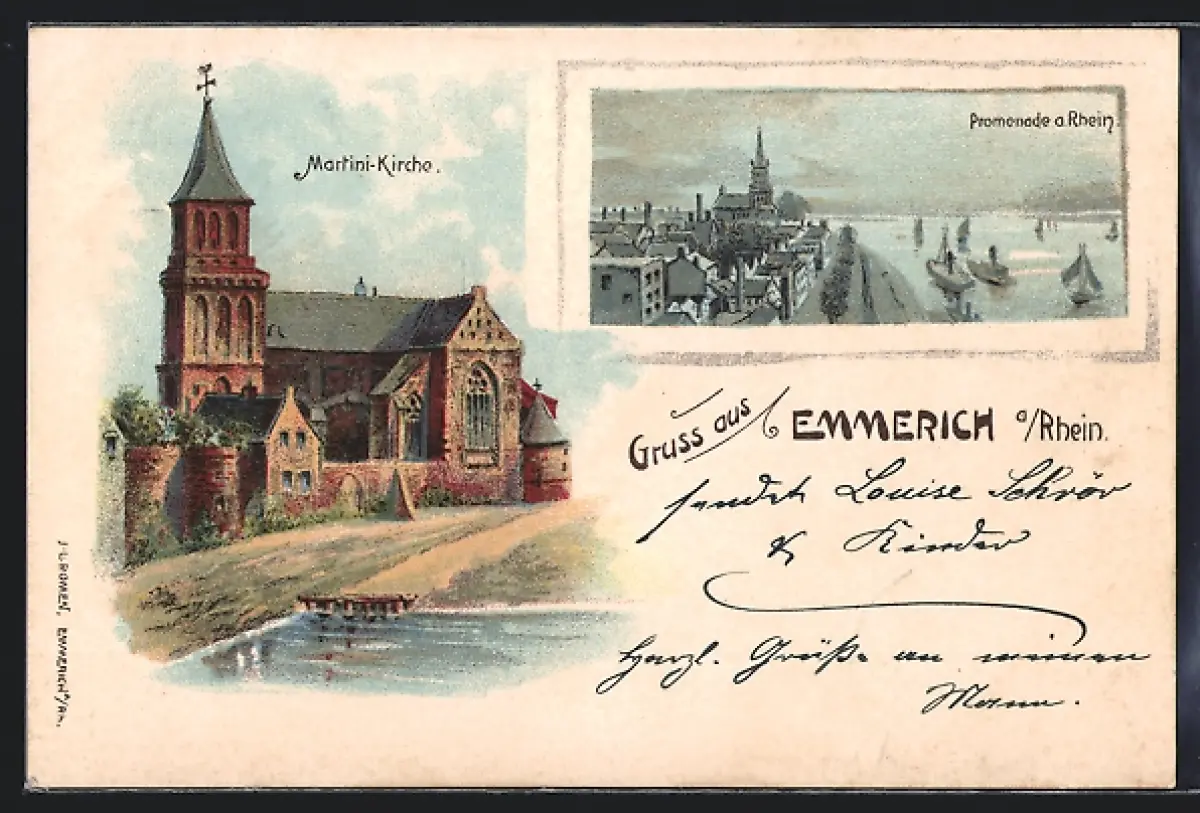 Martini-Kirche.
Promenade a. Rhein.
Gruss aus EMMERICH a/Rhein.
sendet Louise Schrör
& Kinder
Herzl. Grüße an meinen
Mann.
J. L. ROMEN, EMMERICH a/Rh.